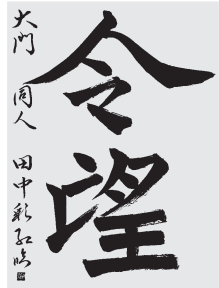 令望
大門 同人 田中彩紅臨